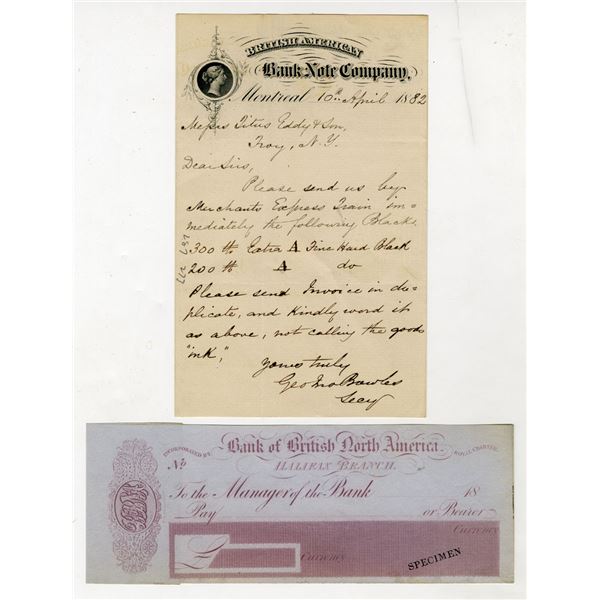 BRITISH AMERICAN
Bank Note Company,
Montreal 10th April 1882
Messrs Titus Eddy & Son,
Troy, N.Y.
Dear Sirs,
Please send us by
Merchants Express Train im=
mediately the following Black:
300 lb Extra A Fine Hard Black
200 lb A do
Please send Invoice in du=
plicate, and kindly word it
as above, not calling the goods
"ink,"
Yours truly
Geo Jno Bowles
Secy
INCORPORATED BY Bank of British North America. ROYAL CHARTER.
HALIFAX BRANCH.
No
To the Manager of the Bank 18
Pay or Bearer
Currency
£ Currency
SPECIMEN